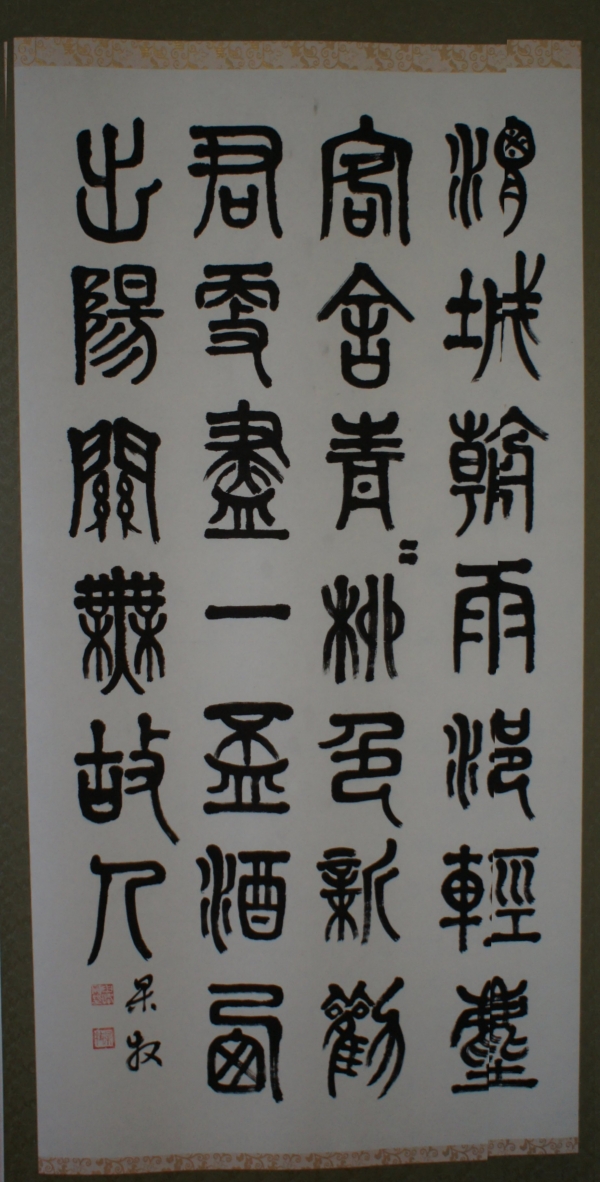 渭城朝雨浥輕塵
客舍青〻柳色新勸
君更盡一盃酒西
出陽關無故人
牧